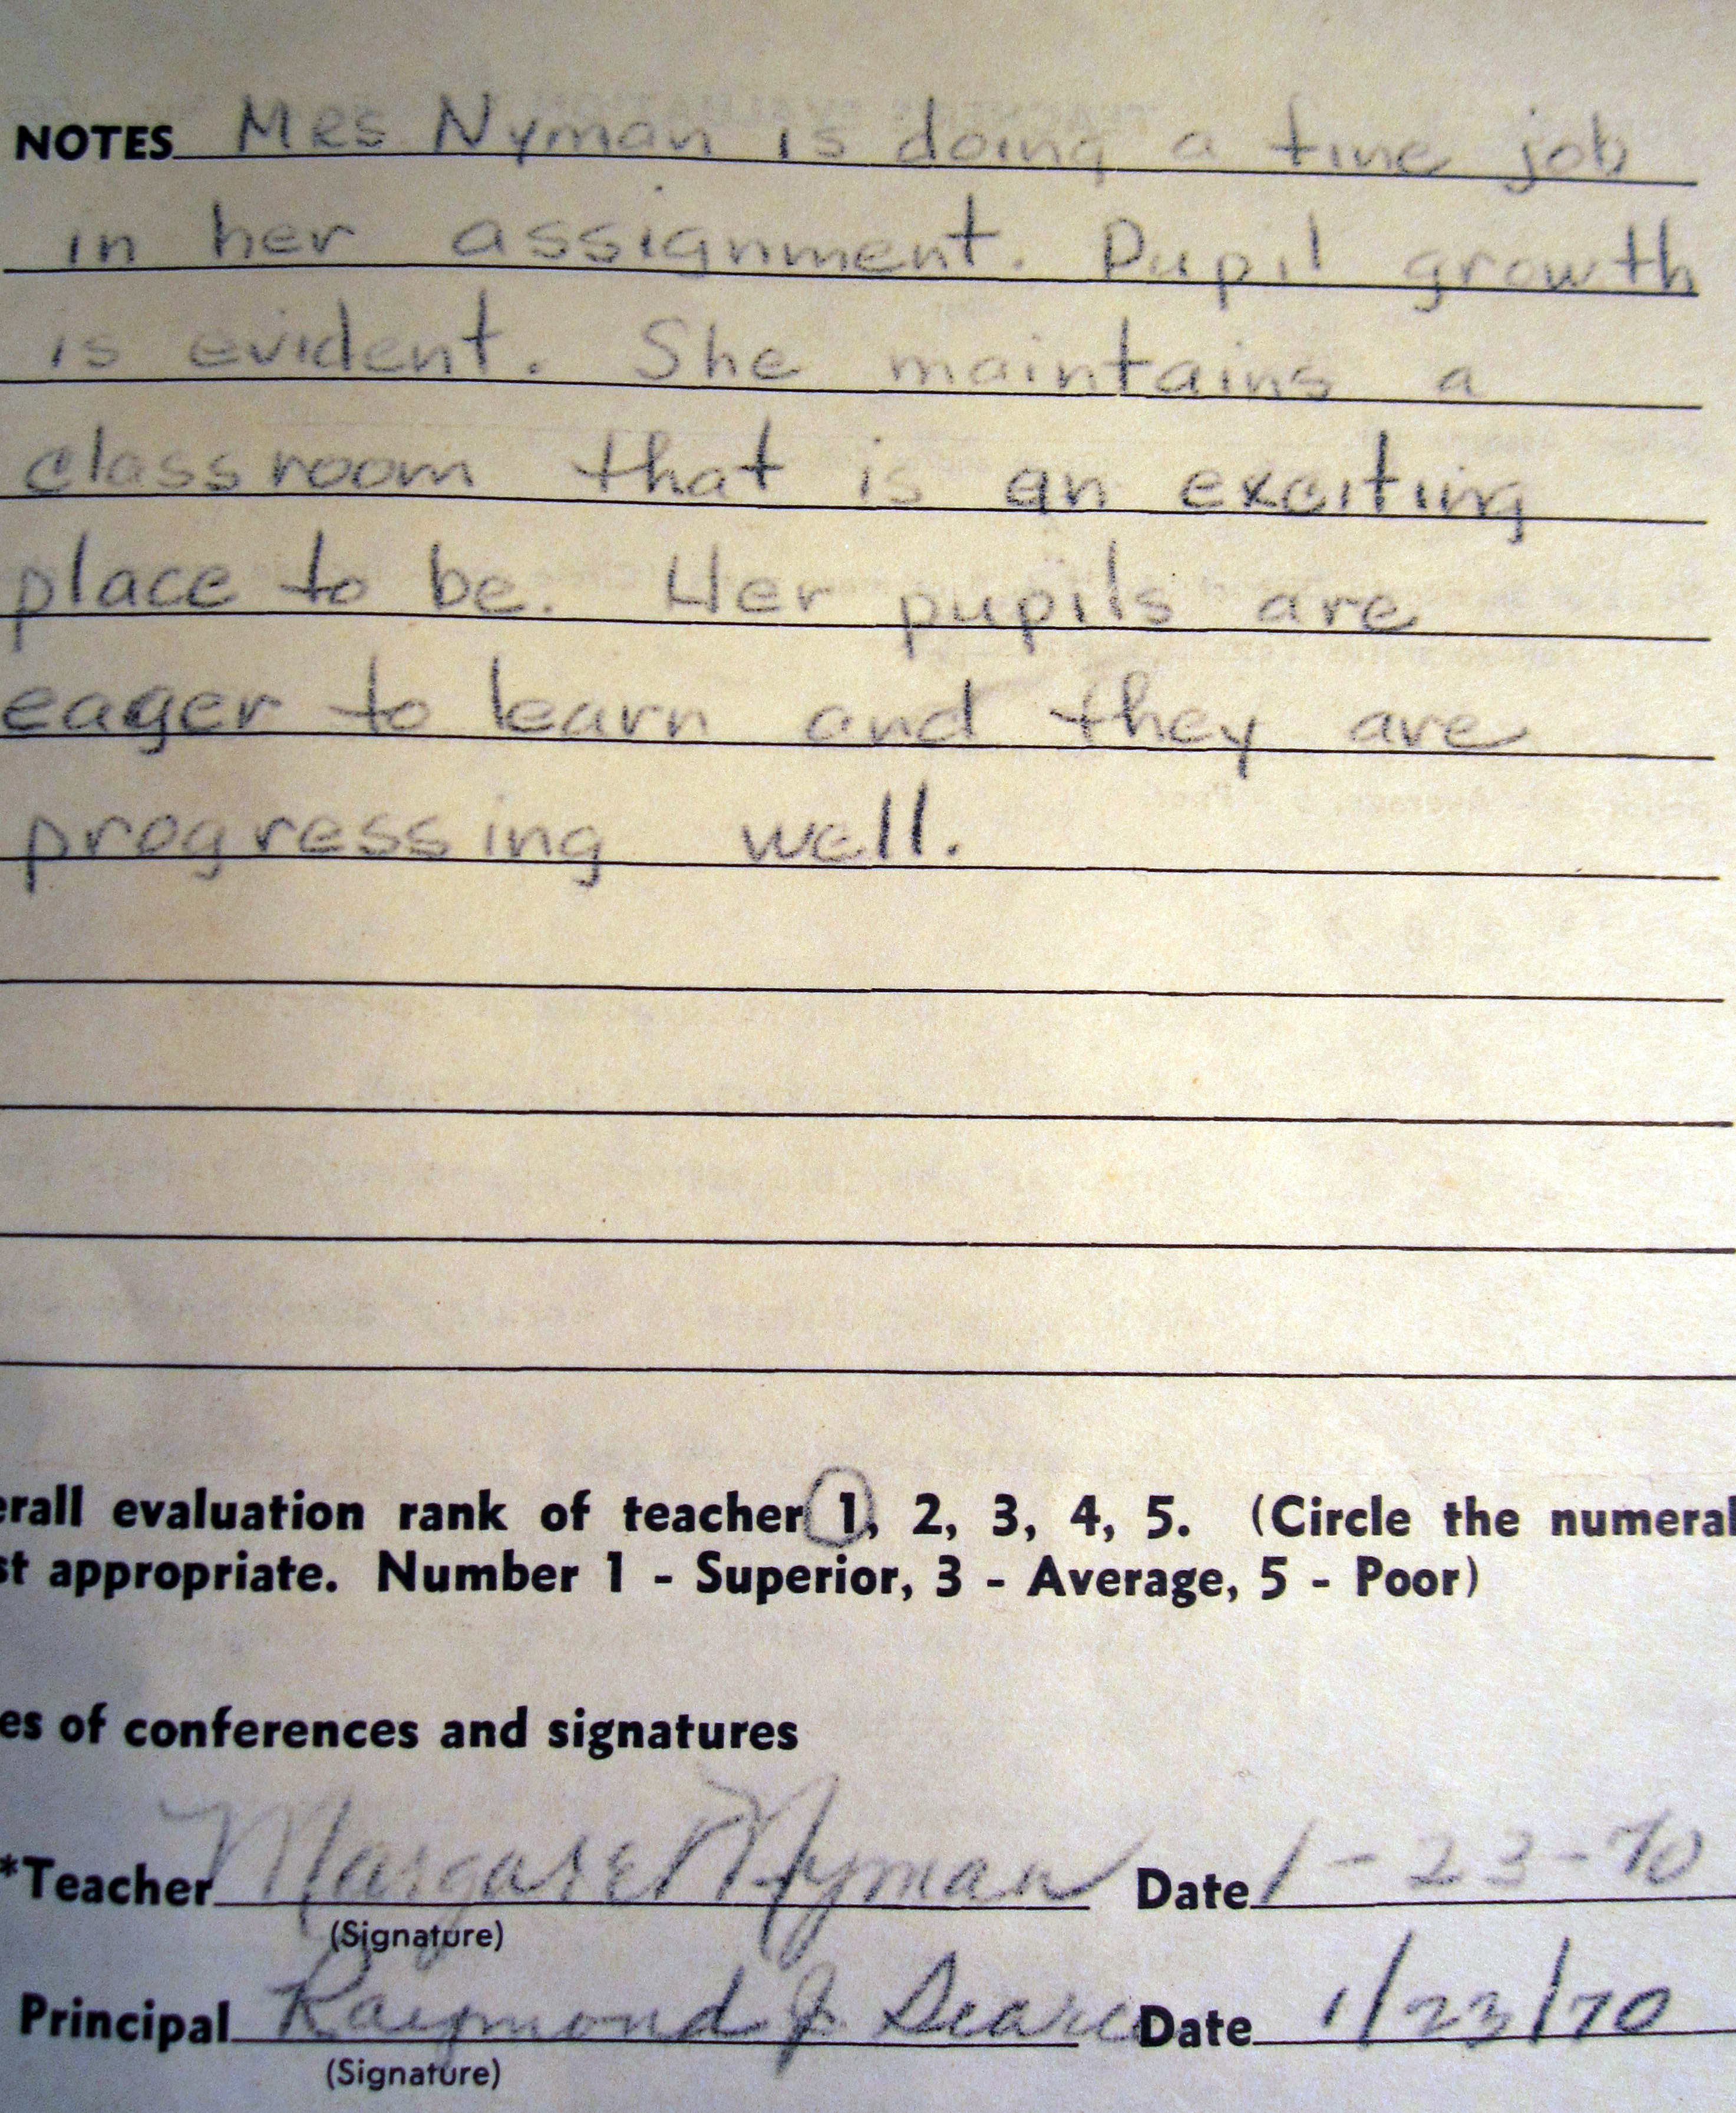 NOTES Mrs Nyman is doing a fine job
in her assignment. Pupil growth
is evident. She maintains a
classroom that is an exciting
place to be. Her pupils are
eager to learn and they are
progressing well.
erall evaluation rank of teacher 1, 2, 3, 4, 5. (Circle the numeral
st appropriate. Number 1 - Superior, 3 - Average, 5 - Poor)
es of conferences and signatures
*Teacher Margaret Nyman Date 1-23-70
(Signature)
Principal Raymond J. Date 1/23/70
(Signature)